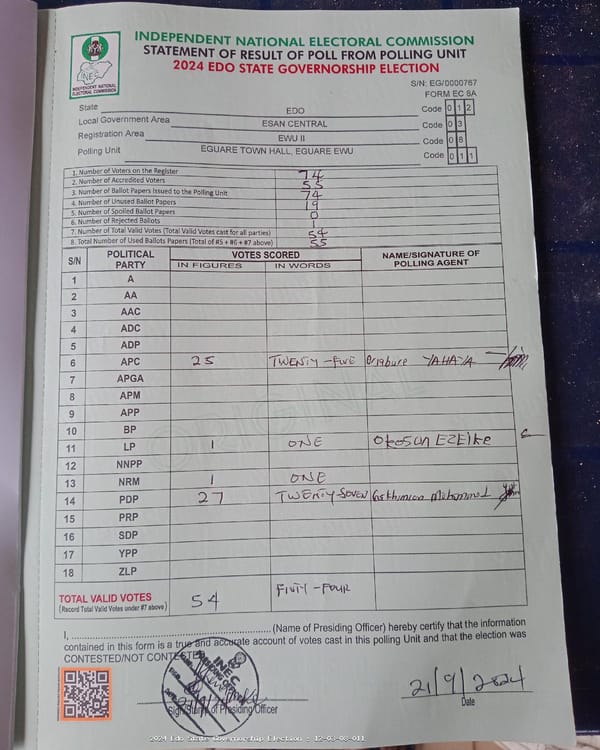 INDEPENDENT NATIONAL ELECTORAL COMMISSION
STATEMENT OF RESULT OF POLL FROM POLLING UNIT
2024 EDO STATE GOVERNORSHIP ELECTION
INEC
INDEPENDENT NATIONAL ELECTORAL COMMISSION
S/N: EG/0000767
FORM EC 8A
State EDO Code 0 1 2
Local Government Area ESAN CENTRAL Code 0 3
Registration Area EWU II Code 0 8
Polling Unit EGUARE TOWN HALL, EGUARE EWU Code 0 1 1
1. Number of Voters on the Register 74
2. Number of Accredited Voters 55
3. Number of Ballot Papers Issued to the Polling Unit 74
4. Number of Unused Ballot Papers 19
5. Number of Spoiled Ballot Papers 0
6. Number of Rejected Ballots 1
7. Number of Total Valid Votes (Total Valid Votes cast for all parties) 54
8. Total Number of Used Ballots Papers (Total of #5 + #6 + #7 above) 55
S/N POLITICAL PARTY VOTES SCORED NAME/SIGNATURE OF POLLING AGENT
IN FIGURES IN WORDS
1 A
2 AA
3 AAC
4 ADC
5 ADP
6 APC 25 TWENTY-FIVE YAHAYA
7 APGA
8 APM
9 APP
10 BP
11 LP 1 ONE Okosun EZEIKE
12 NNPP
13 NRM 1 ONE
14 PDP 27 TWENTY-SEVEN Mohammed
15 PRP
16 SDP
17 YPP
18 ZLP
TOTAL VALID VOTES 54 FIVTY-FOUR
(Record Total Valid Votes under #7 above)
ORIGINAL
I, (Name of Presiding Officer) hereby certify that the information
contained in this form is a true and accurate account of votes cast in this polling Unit and that the election was
CONTESTED/NOT CONTESTED
INEC
Signature of Presiding Officer
21/9/2024
Date
2024 Edo State Governorship Election : 12-03-08-011